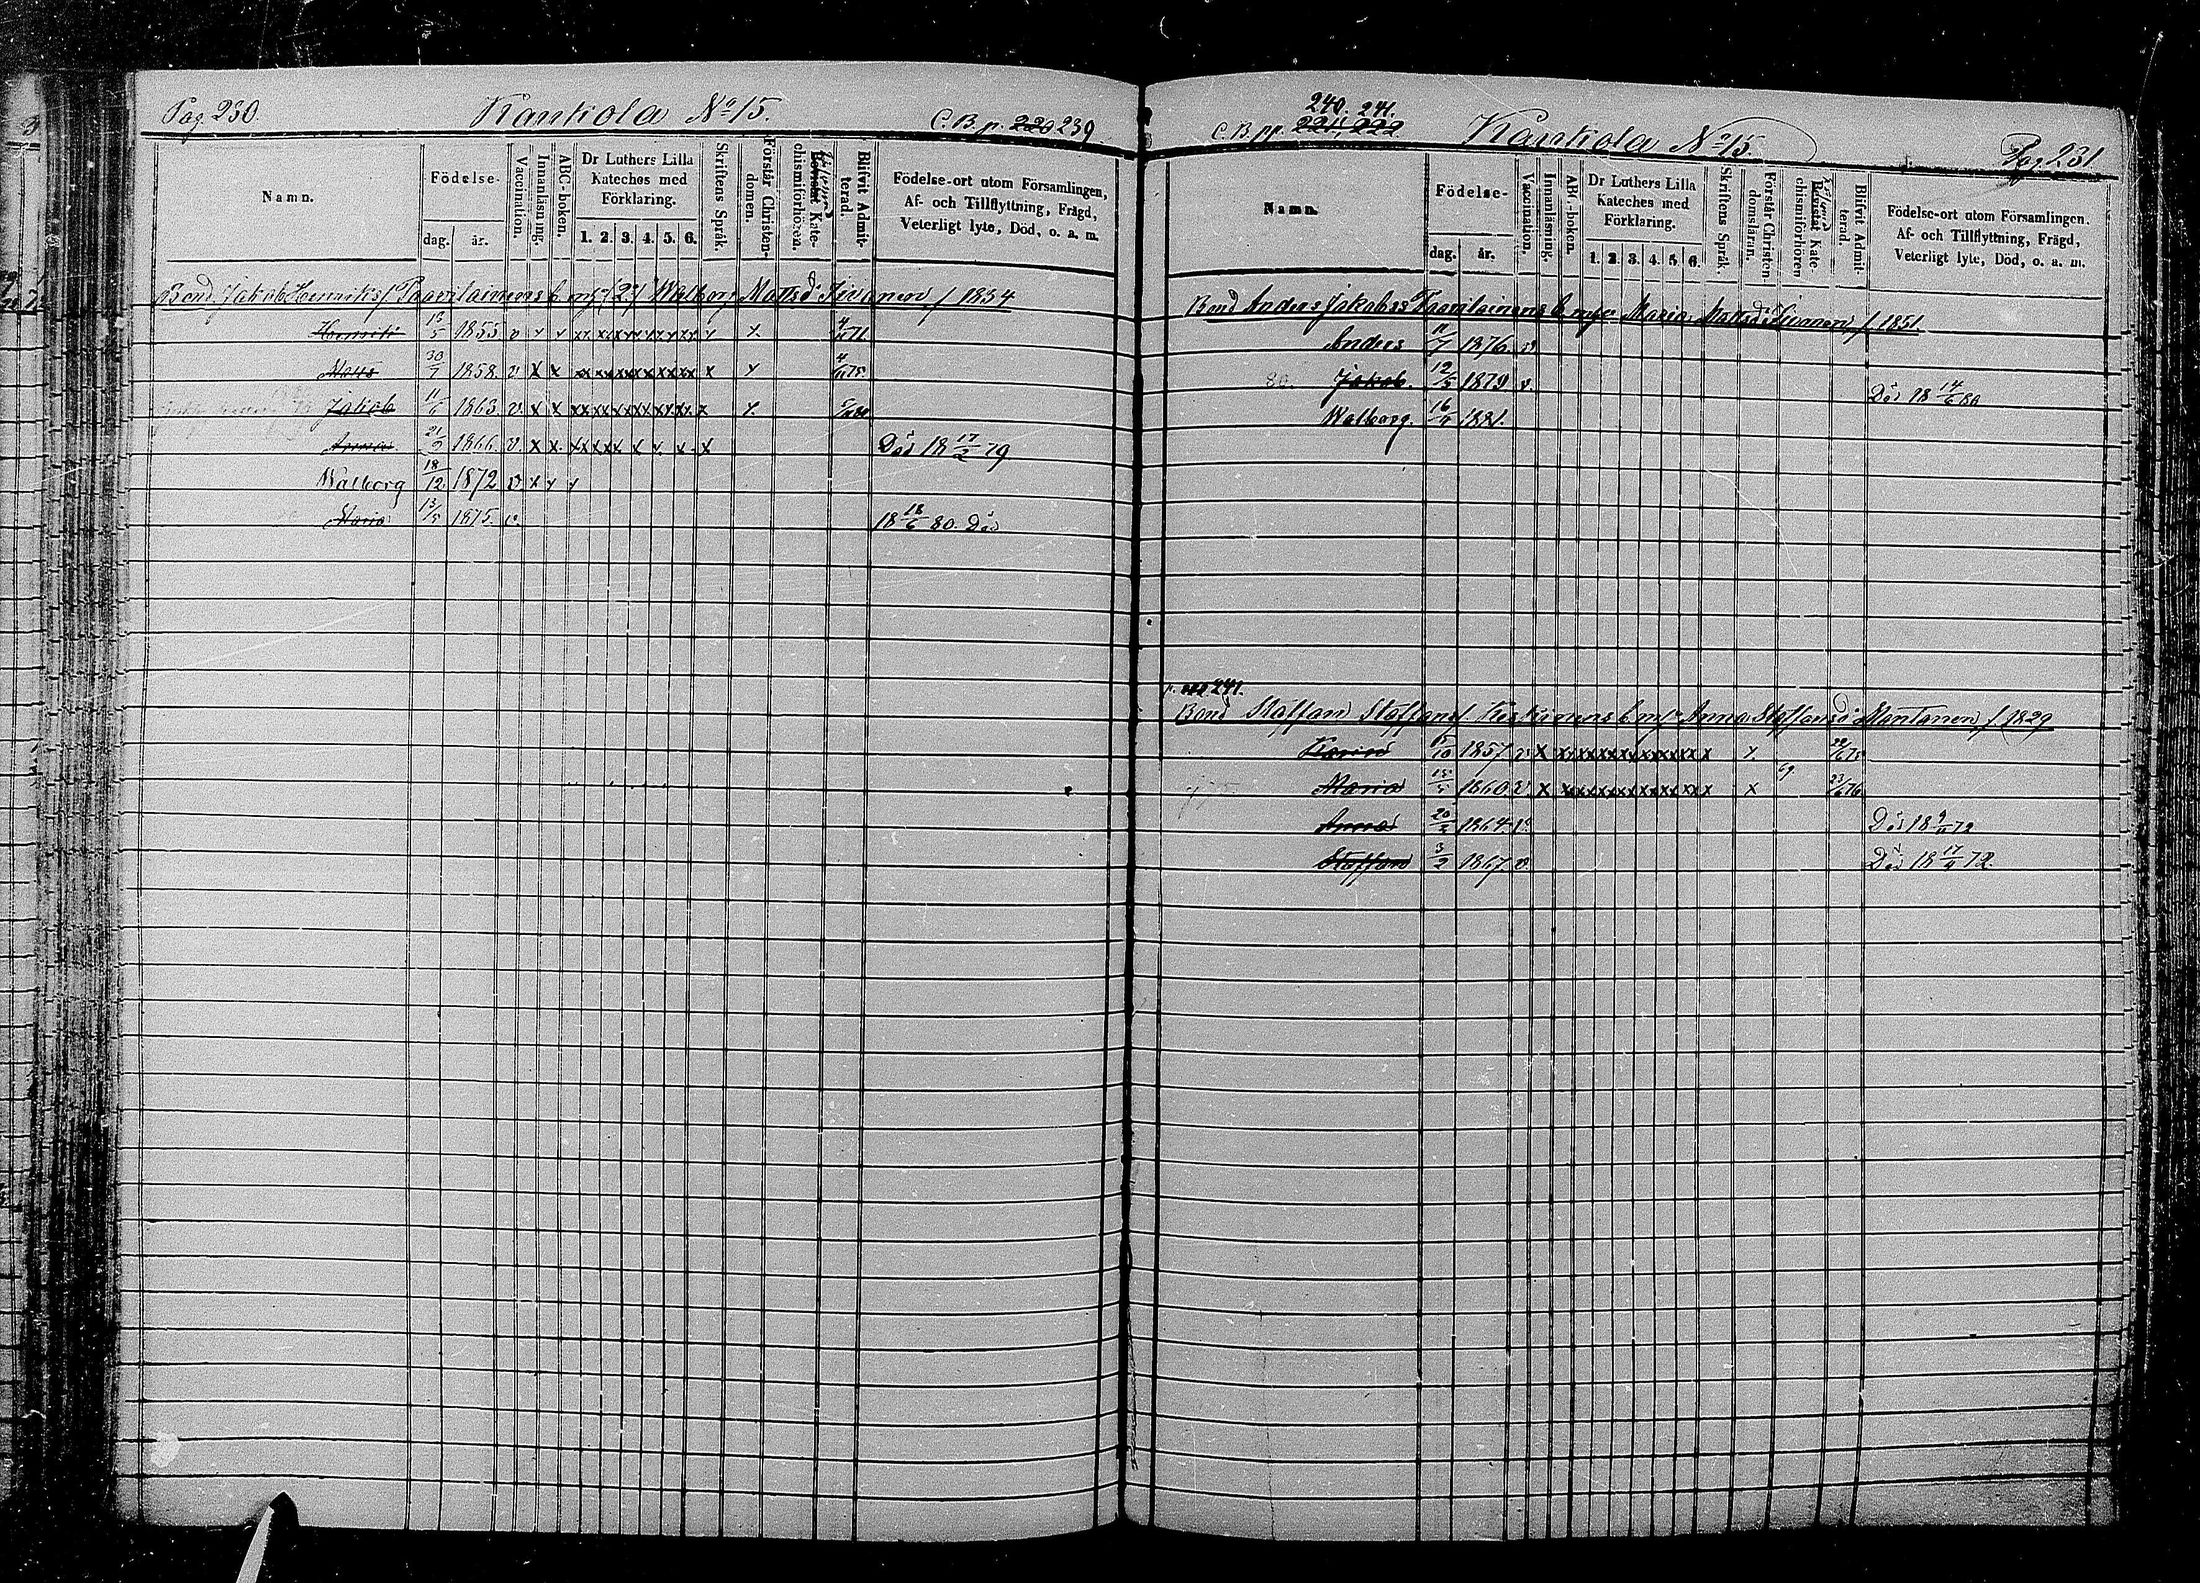 Pag 230.
Kankola No 15.
C.B. p. 220 239
Namn.
Födelse-
dag.
år.
Vaccination.
Innanläsning.
ABC-boken.
Dr Luthers Lilla
Kateches med
Förklaring.
1. 2. 3. 4. 5. 6.
Skriftens Språk.
Förstår Christen-
domen.
Bevistat Kate-
chismiförhören.
Blifvit Admit-
terad.
Födelse-ort utom Församlingen,
Af- och Tillflyttning, Frägd,
Veterligt lyte, Död, o. a. m.
Bond Jakob Henrikss Paavilainens b m h (2) Walborg Mattsd Iivanen f 1834
Henrik 1855. v
Matts 30/7 1858. v x x xx xx xx xx xx xx x
Jakob 11/6 1863. v. x x xx xx xx xx xx xx x
Anna 21/2 1866. v. x x x Död 18 17/2 79
Walborg 18/12 1872 v. x
Maria 13/5 1875. v. 18 18/6 80. Död
240. 241.
C.B. pp. 221, 222
Kankola No 15.
Pag. 231
Namn.
Födelse-
dag.
år.
Vaccination.
Innanläsning.
ABC-boken.
Dr Luthers Lilla
Kateches med
Förklaring.
1. 2. 3. 4. 5. 6.
Skriftens Språk.
Förstår Christen-
domsläran.
Bevistat Kate
chismiförhören
Blifvit Admit-
terad.
Födelse-ort utom Församlingen.
Af- och Tillflyttning, Frägd,
Veterligt lyte, Död, o. a. m.
Bond Anders Jakobss Paavilainens b m h Maria Mattsd Iivanen f 1851
Anders 11/7 1876. v
80. Jakob. 12/5 1879 v. Död 18 14/6 80
Walborg. 1881.
p. 241.
Bond Staffan Staffans b m h Anna Staffansd Mantanen f 1829
15/10 1857. v x x
Maria 1860 v. x x 69 23/6 76
Anna 20/3 1864. v. Död 18 72
Staffan 3/2 1867. v. Död 18 72.